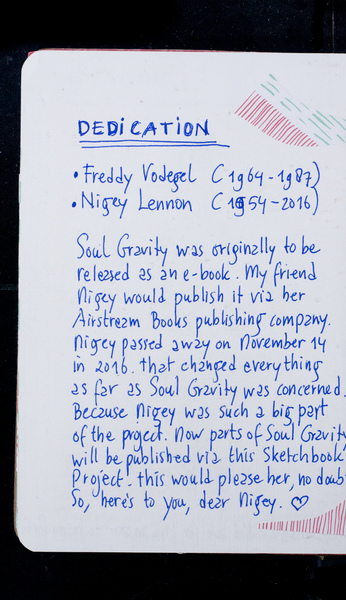 DEDiCATION
• Freddy Vodegel (1964-1987)
• Nigey Lennon (1954-2016)
Soul Gravity was originally to be
released as an e-book. My friend
Nigey would publish it via her
Airstream Books publishing company.
Nigey passed away on November 14
in 2016. that changed everything
as far as Soul Gravity was concerned.
Because Nigey was such a big part
of the project. Now parts of Soul Gravity
will be published via this Sketchbook
Project. this would please her, no doub
So, here's to you, dear Nigey. ♡